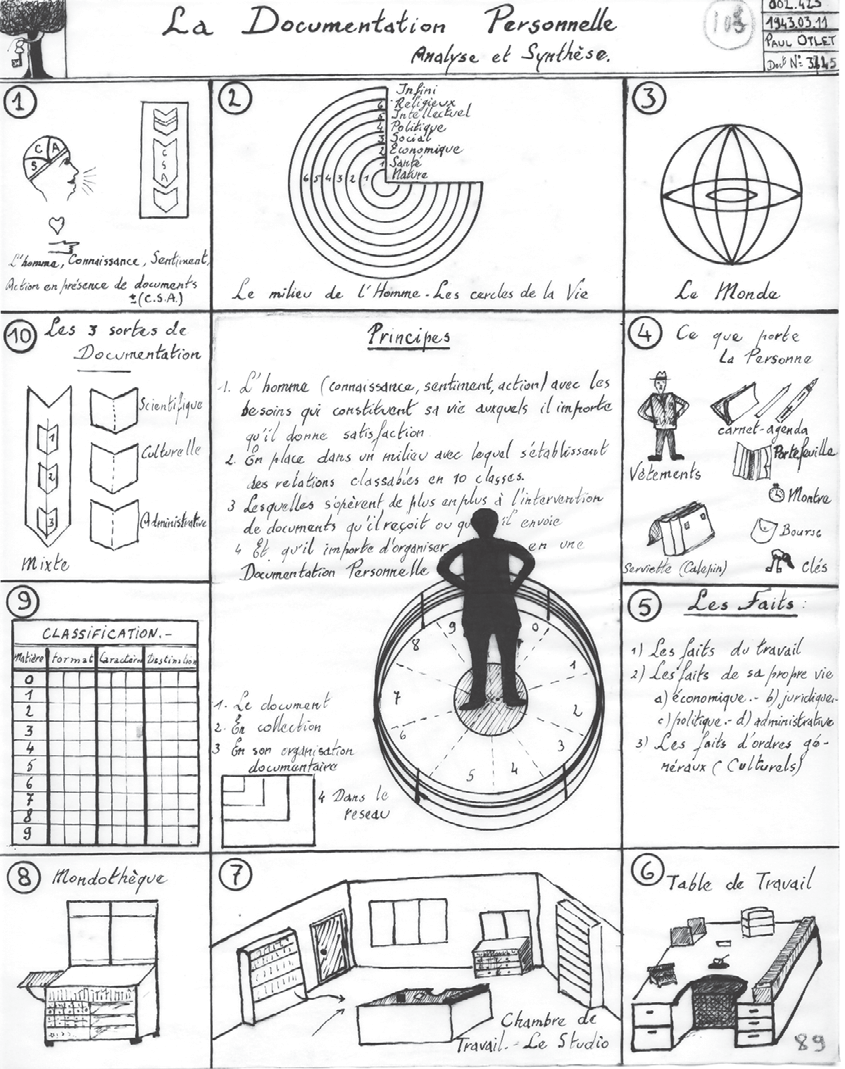 La Documentation Personnelle
Analyse et Synthèse.
103
002.425
1943.03.11
PAUL OTLET
1
C A
S
C
S
A
L'homme, Connaissance, Sentiment,
Action en présence de documents
± (C.S.A.)
2
Infini
6 Religieux
5 Intellectuel
4 Politique
3 Social
2 Economique
1 Santé
Nature
6 5 4 3 2 1
Le milieu de l'Homme - Les cercles de la Vie
3
Le Monde
10 Les 3 sortes de
Documentation
1
2
3
Scientifique
Culturelle
Administrative
Mixte
Principes
1. L'homme (connaissance, sentiment, action) avec les
besoins qui constituent sa vie auxquels il importe
qu'il donne satisfaction
2. En place dans un milieu avec lequel s'établissent
des relations classables en 10 classes.
3 Lesquelles s'opèrent de plus en plus à l'intervention
de documents qu'il reçoit ou qu'il envoie
4 Et qu'il importe d'organiser en une
Documentation Personnelle
8 9 0
7 1
6 2
5 4 3
1. Le document
2. En collection
3 En son organisation
documentaire
4 Dans le
reseau
4 Ce que porte
La Personne
Vêtements
carnet-agenda
Portefeuille
Montre
Bourse
Serviette (Calepin)
Clés
5 Les Faits :
1) Les faits du travail
2) Les faits de sa propre vie
a) économique.- b) juridique.-
c) politique - d) administrative
3) Les faits d'ordres gé-
néraux (Culturels)
9
CLASSIFICATION.-
Matière Format Caractère Destination
0
1
2
3
4
5
6
7
8
9
8 Mondothèque
7
Chambre de
Travail. - Le Studio
6 Table de Travail
89